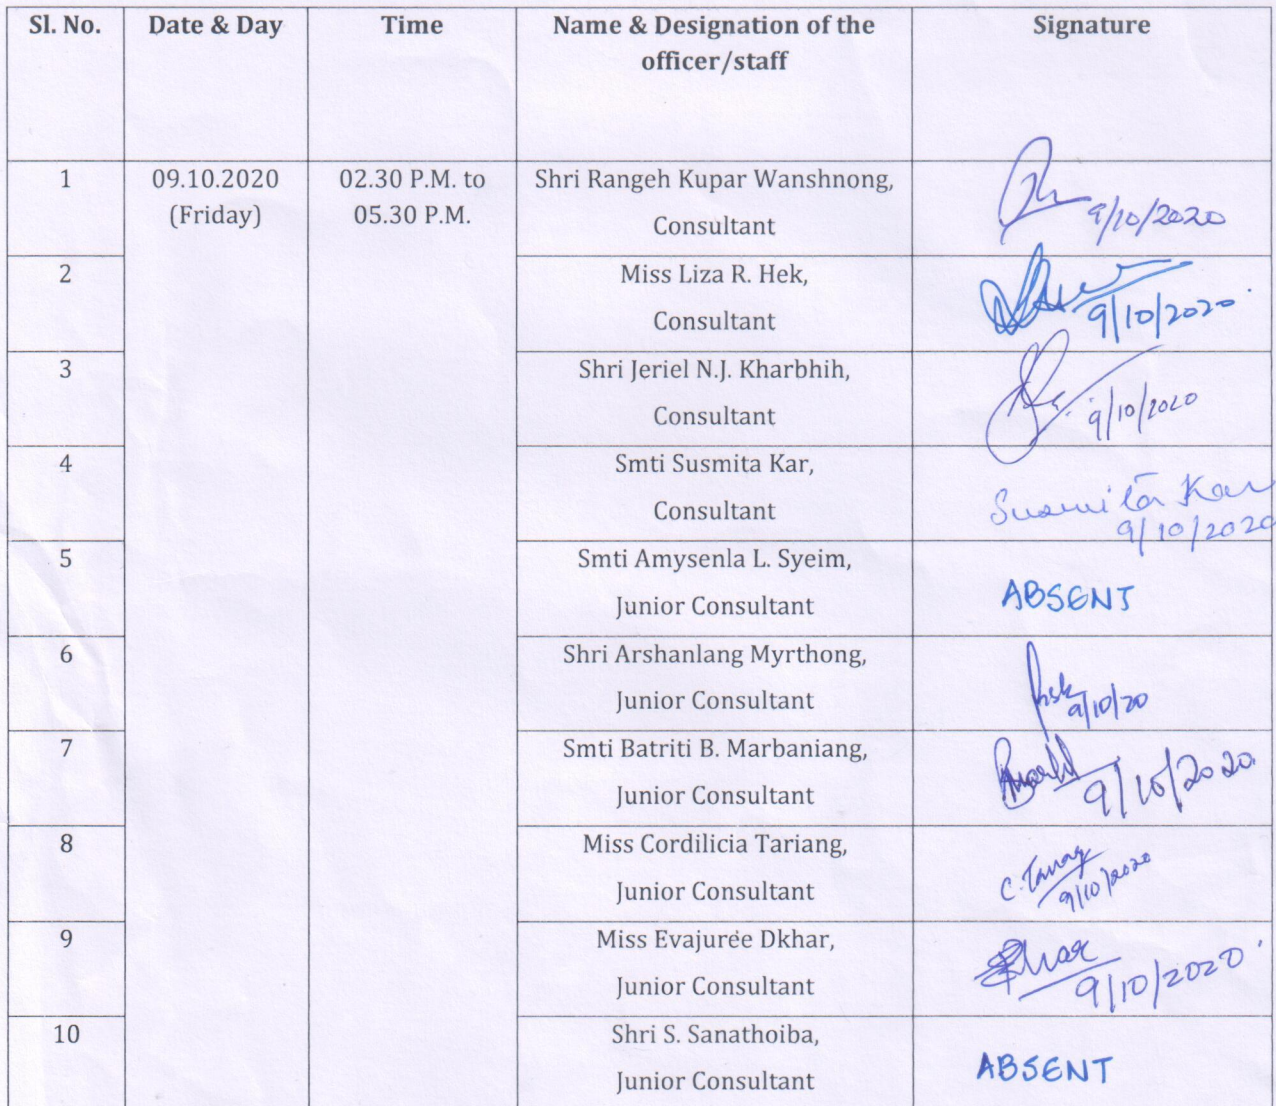 Sl. No. Date & Day Time Name & Designation of the Signature
officer/staff
1 09.10.2020 02.30 P.M. to Shri Rangeh Kupar Wanshnong,
(Friday) 05.30 P.M. Consultant 9/10/2020
2 Miss Liza R. Hek,
Consultant 9/10/2020
3 Shri Jeriel N.J. Kharbhih,
Consultant 9/10/2020
4 Smti Susmita Kar,
Consultant Susmita Kar
9/10/2020
5 Smti Amysenla L. Syeim,
Junior Consultant ABSENT
6 Shri Arshanlang Myrthong,
Junior Consultant 9/10/20
7 Smti Batriti B. Marbaniang,
Junior Consultant 9/10/2020
8 Miss Cordilicia Tariang,
Junior Consultant 9/10/2020
9 Miss Evajuree Dkhar,
Junior Consultant 9/10/2020
10 Shri S. Sanathoiba,
Junior Consultant ABSENT